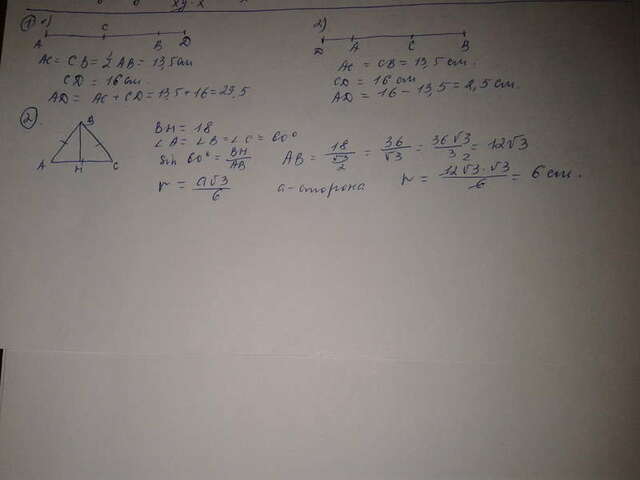 ① 1)
A C B D
AC = CB = 1/2 AB = 13,5 см
CD = 16 см.
AD = AC + CD = 13,5 + 16 = 29,5
2)
D A C B
AC = CB = 13,5 см.
CD = 16 см
AD = 16 - 13,5 = 2,5 см.
②
B
A H C
BH = 18
∠A = ∠B = ∠C = 60°
sin 60° = BH/AB AB = 18/(√3/2) = 36/√3 = 36√3/3 = 12√3
r = a√3/6 a - сторона r = 12√3·√3/6 = 6 см.